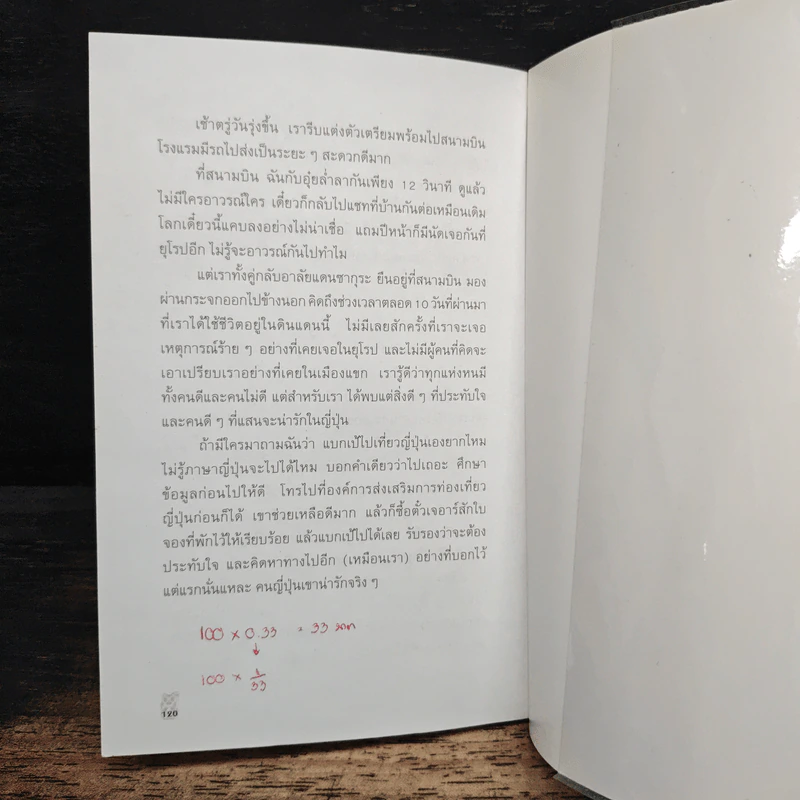 เช้าตรู่วันรุ่งขึ้น เรารีบแต่งตัวเตรียมพร้อมไปสนามบิน
โรงแรมมีรถไปส่งเป็นระยะ ๆ สะดวกดีมาก
ที่สนามบิน ฉันกับอุ๋ยล่ำลากันเพียง 12 วินาที ดูแล้ว
ไม่มีใครอาวรณ์ใคร เดี๋ยวก็กลับไปแชทที่บ้านกันต่อเหมือนเดิม
โลกเดี๋ยวนี้แคบลงอย่างไม่น่าเชื่อ แถมปีหน้าก็มีนัดเจอกันที่
ยุโรปอีก ไม่รู้จะอาวรณ์กันไปทำไม
แต่เราทั้งคู่กลับอาลัยแดนซากุระ ยืนอยู่ที่สนามบิน มอง
ผ่านกระจกออกไปข้างนอก คิดถึงช่วงเวลาตลอด 10 วันที่ผ่านมา
ที่เราได้ใช้ชีวิตอยู่ในดินแดนนี้ ไม่มีเลยสักครั้งที่เราจะเจอ
เหตุการณ์ร้าย ๆ อย่างที่เคยเจอในยุโรป และไม่มีผู้คนที่คิดจะ
เอาเปรียบเราอย่างที่เคยในเมืองแขก เรารู้ดีว่าทุกแห่งหนมี
ทั้งคนดีและคนไม่ดี แต่สำหรับเรา ได้พบแต่สิ่งดี ๆ ที่ประทับใจ
และคนดี ๆ ที่แสนจะน่ารักในญี่ปุ่น
ถ้ามีใครมาถามฉันว่า แบกเป้ไปเที่ยวญี่ปุ่นเองยากไหม
ไม่รู้ภาษาญี่ปุ่นจะไปได้ไหม บอกคำเดียวว่าไปเถอะ ศึกษา
ข้อมูลก่อนไปให้ดี โทรไปที่องค์การส่งเสริมการท่องเที่ยว
ญี่ปุ่นก่อนก็ได้ เขาช่วยเหลือดีมาก แล้วก็ซื้อตั๋วเจอาร์สักใบ
จองที่พักไว้ให้เรียบร้อย แล้วแบกเป้ไปได้เลย รับรองว่าจะต้อง
ประทับใจ และคิดหาทางไปอีก (เหมือนเรา) อย่างที่บอกไว้
แต่แรกนั่นแหละ คนญี่ปุ่นเขาน่ารักจริง ๆ
100 × 0.33 = 33 บาท
↓
100 × 1/33
120